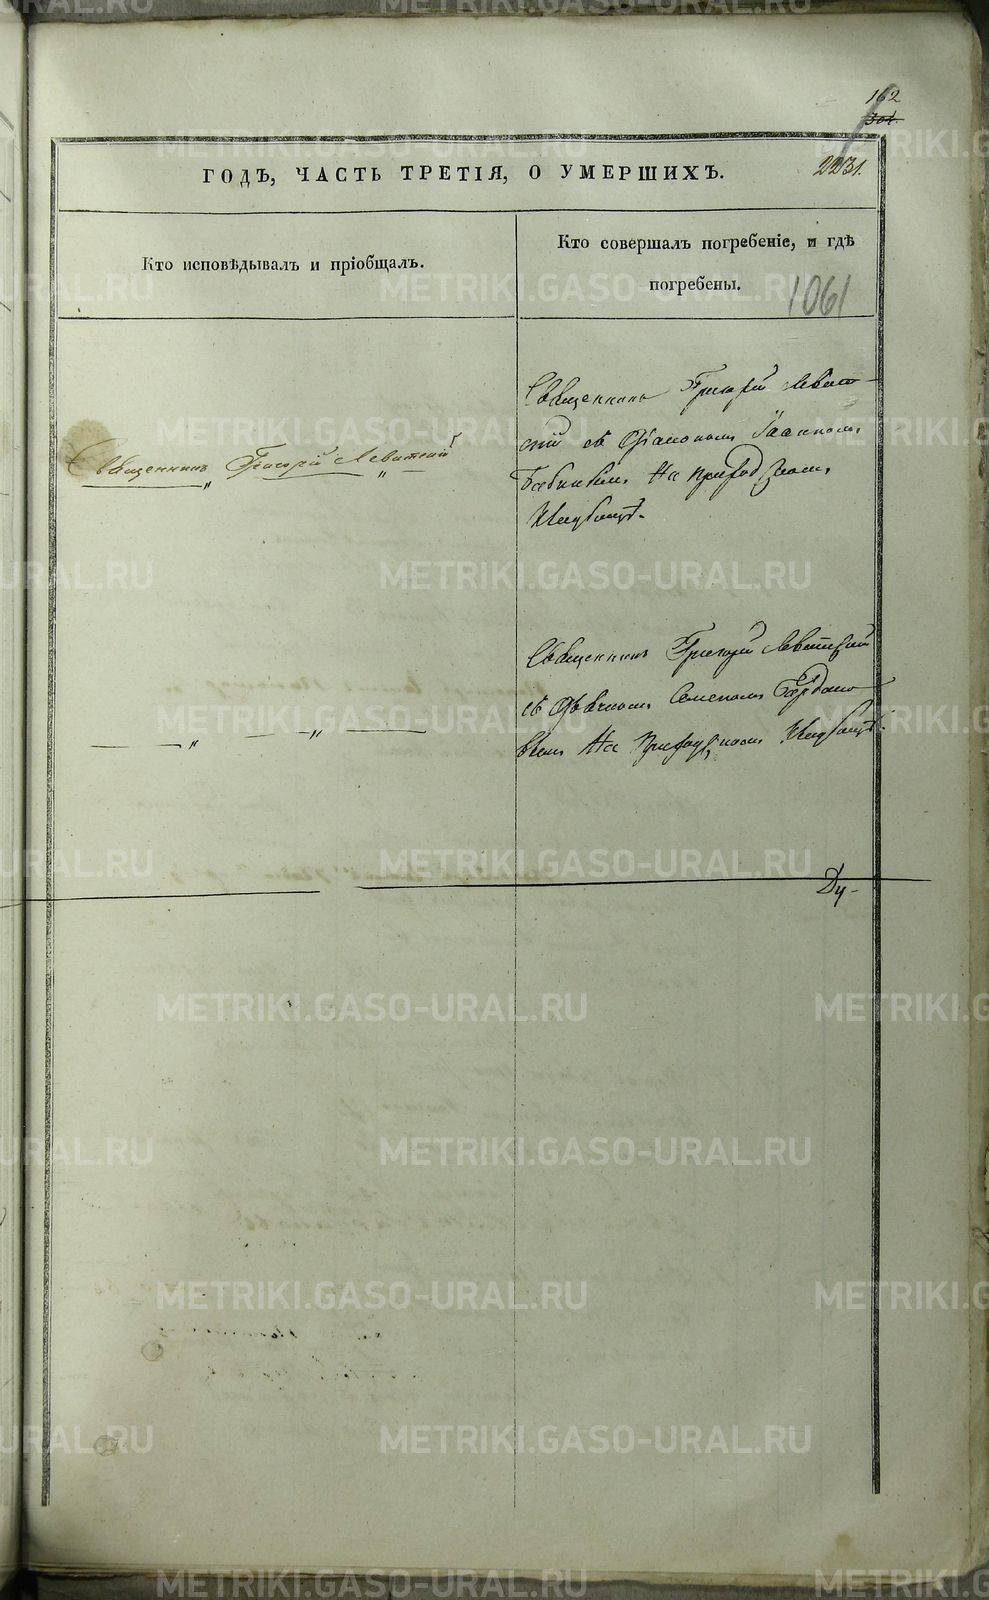 162
304.
2231.
ГОДЪ, ЧАСТЬ ТРЕТІЯ, О УМЕРШИХЪ.
Кто исповѣдывалъ и пріобщалъ.
Кто совершалъ погребеніе, и гдѣ
погребены.
1061
Священникъ Григорій Левит-
скій съ Діакономъ Іоанномъ
на приходскомъ
Кладбищѣ.
Священникъ Григорій Левитскій
Священникъ Григорій Левитскій
съ Дьячкомъ Семеномъ
на приходскомъ Кладбищѣ.
Ду-
METRIKI.GASO-URAL.RU